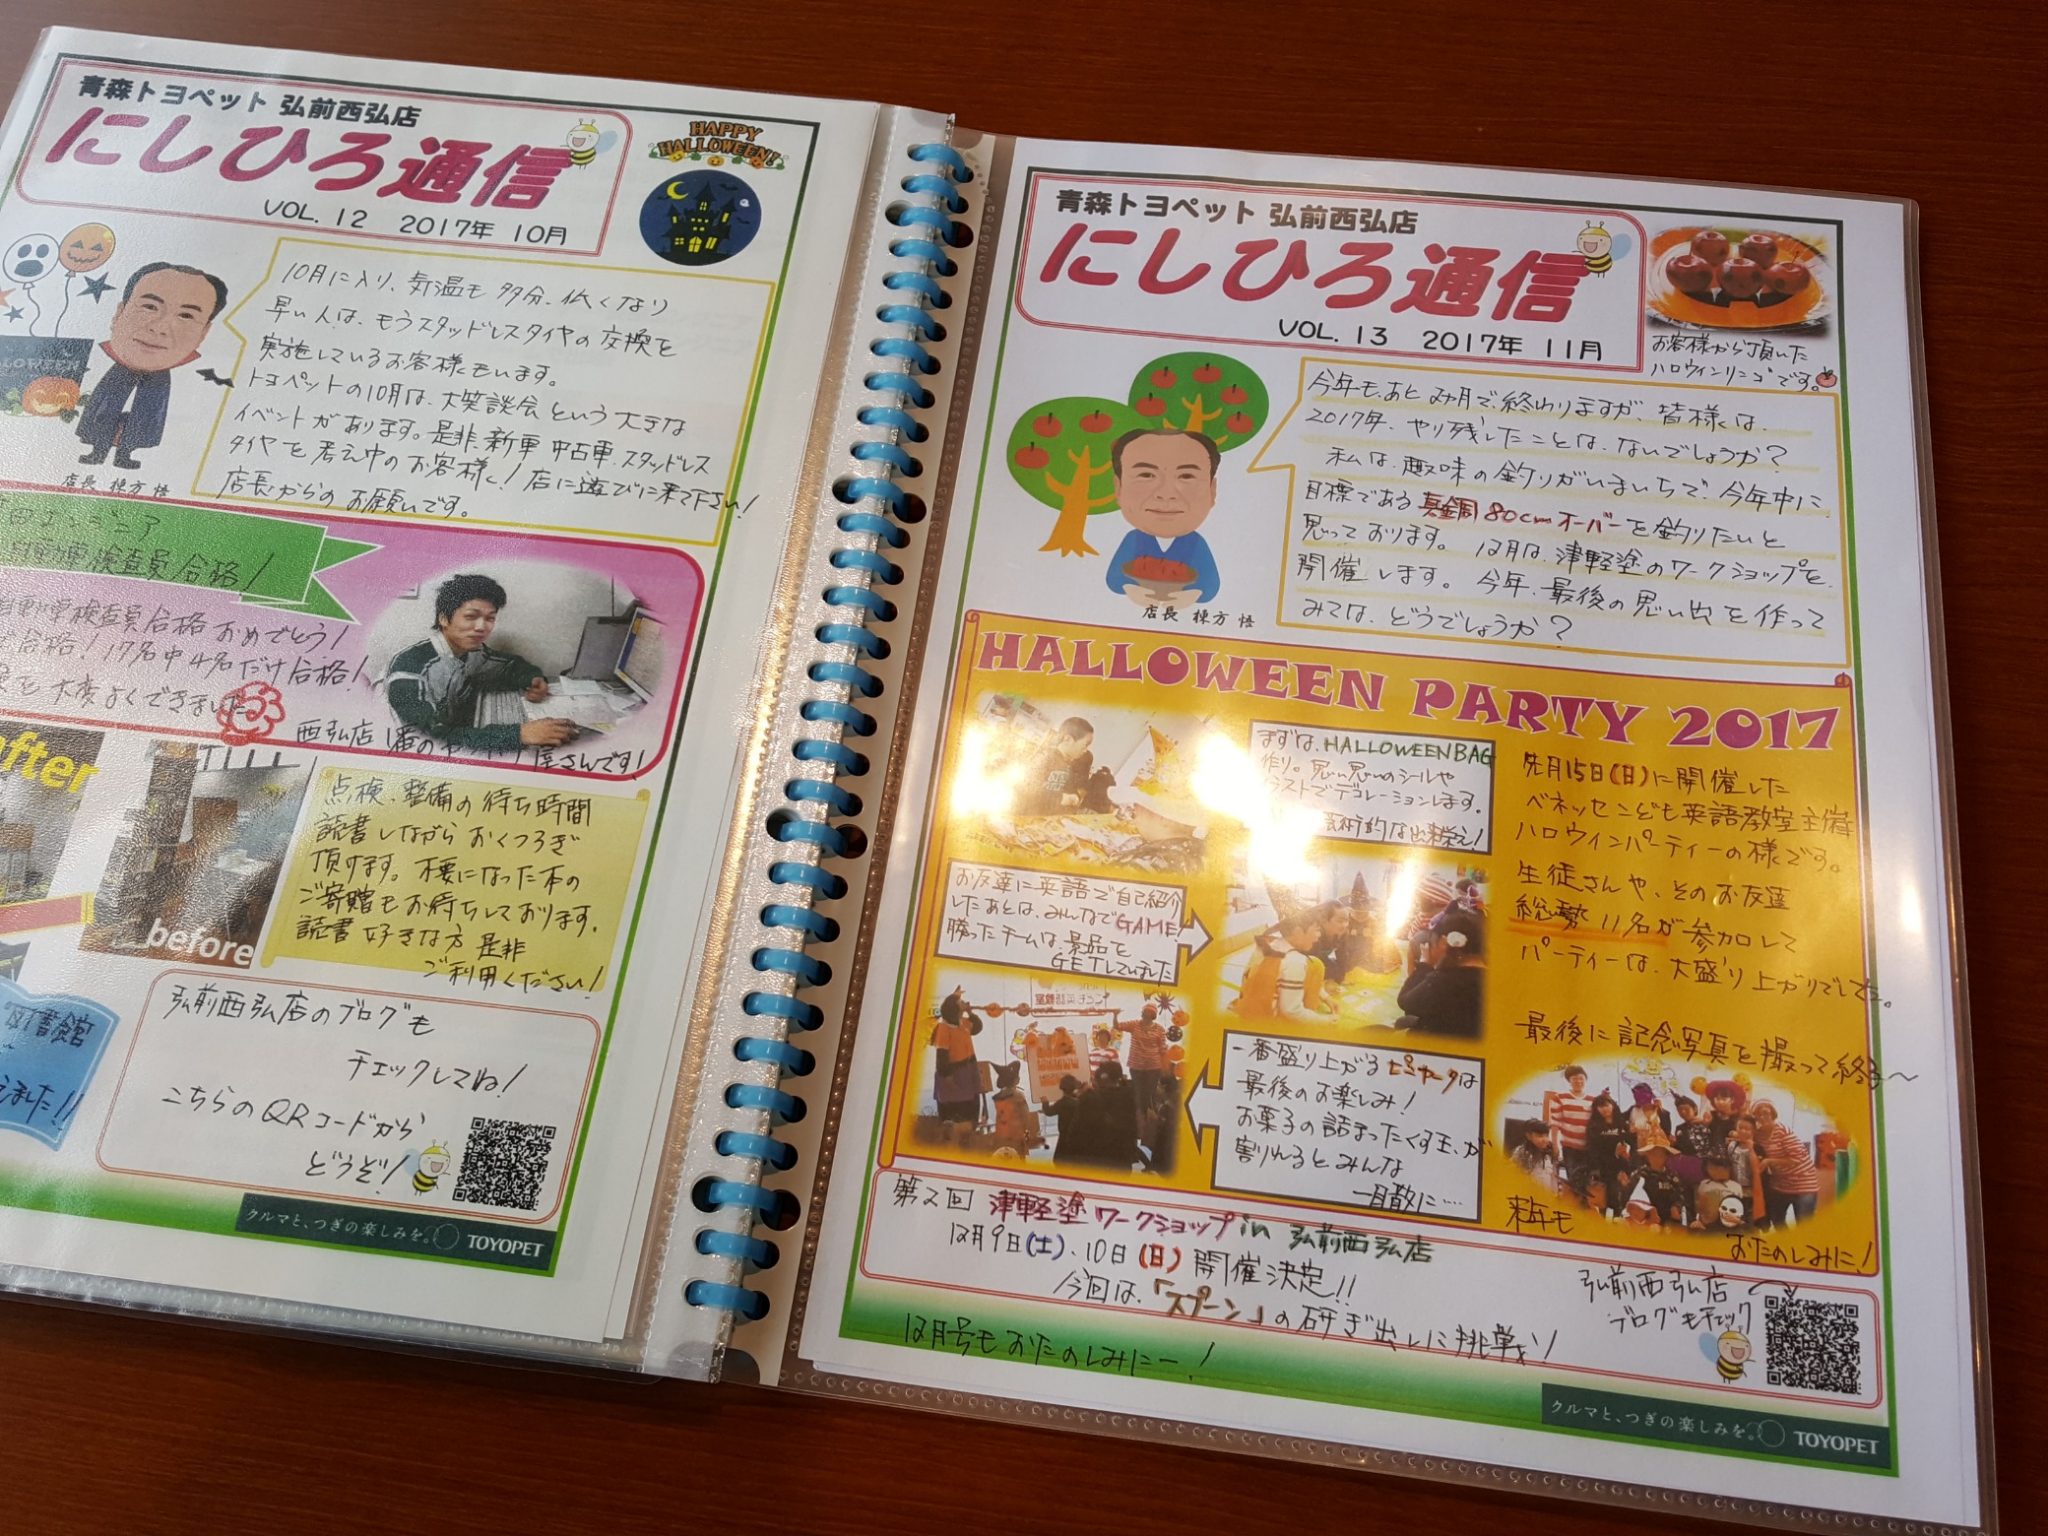 青森トヨペット 弘前西弘店
にしひろ通信
VOL. 12 2017年 10月
HAPPY
HALLOWEEN!
10月に入り、気温も多分、低くなり
早い人は、もうスタッドレスタイヤの交換を
実施しているお客様もいます。
トヨペットの10月は、大笑談会という大きな
イベントがあります。是非、新車 中古車、スタッドレス
タイヤを考え中のお客様、! 店に遊びに来て下さい!
店長からのお願いです。
店長 棟方 悟
エンジニア
自動車検査員合格!
自動車検査員合格おめでとう!
合格! 17名中4名だけ合格!
を大変よくできました
西弘店1番の
屋さんです!
after
before
点検、整備の待ち時間
読書しながらおくつろぎ
頂けます。不要になった本の
ご寄贈もお待ちしております。
読書好きな方 是非
ご利用ください!
図書館
ました!!
弘前西弘店のブログも
チェックしてね!
こちらのQRコードから
どうぞ!
クルマと、つぎの楽しみを。 TOYOPET
青森トヨペット 弘前西弘店
にしひろ通信
VOL. 13 2017年 11月
お客様から頂いた
ハロウィンリンゴです。
今年も、あと2ヵ月で、終わりますが、皆様は、
2017年、やり残したことは、ないでしょうか?
私は、趣味の釣りがいまいちで、今年中に
目標である真鯛80cmオーバーを釣りたいと
思っております。 12月は、津軽塗のワークショップを
開催します。 今年、最後の思い出を作って
みては、どうでしょうか?
店長 棟方 悟
HALLOWEEN PARTY 2017
まずは、HALLOWEEN BAG
作り。思い思いのシールや
イラストでデコレーションします。
芸術的な出来栄え!
先月15日(日)に開催した
ベネッセこども英語教室主催
ハロウィンパーティーの様です。
生徒さんや、そのお友達
総勢11名が参加して
パーティーは、大盛り上がりでした。
お友達に英語で自己紹介
したあとは、みんなでGAME!
勝ったチームは、景品を
GETしていました
一番盛り上がるピニャータは
最後のお楽しみ!
お菓子の詰まったくす玉が
割れるとみんな
一目散に…
最後に記念写真を撮って終了〜
来年も
おたのしみに!
第2回 津軽塗ワークショップin 弘前西弘店
12月9日(土)、10日(日)開催決定!!
今回は、「スプーン」の研ぎ出しに挑戦!
弘前西弘店
ブログもチェック
12月号もおたのしみにー!
クルマと、つぎの楽しみを。 TOYOPET